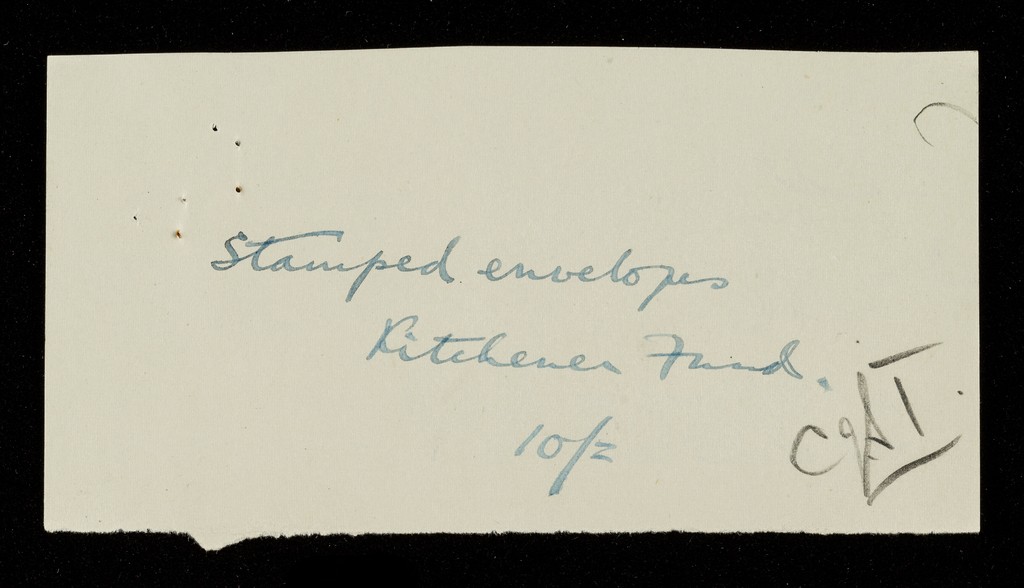 Stamped envelopes
Kitchener Fund.
10/=